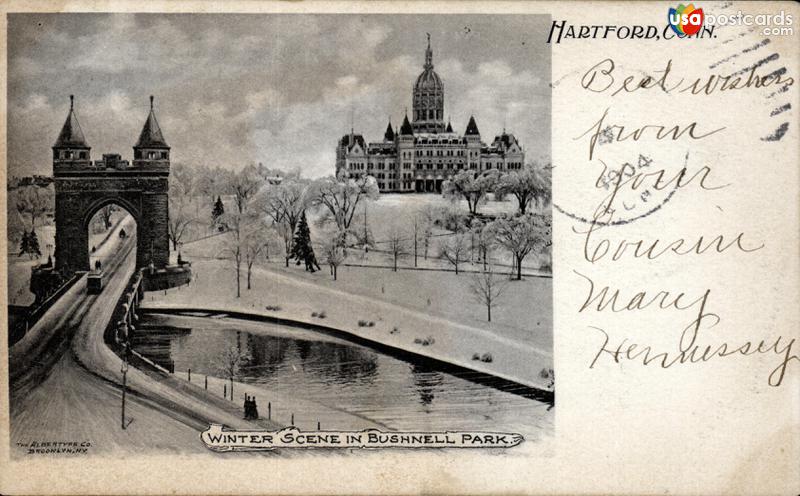 usapostcards
.com
HARTFORD, CONN.
Best wishes
from
Your
Cousin
Mary
Hennessey
1904
WINTER SCENE IN BUSHNELL PARK.
THE ALBERTYPE CO.
BROOKLYN, N.Y.